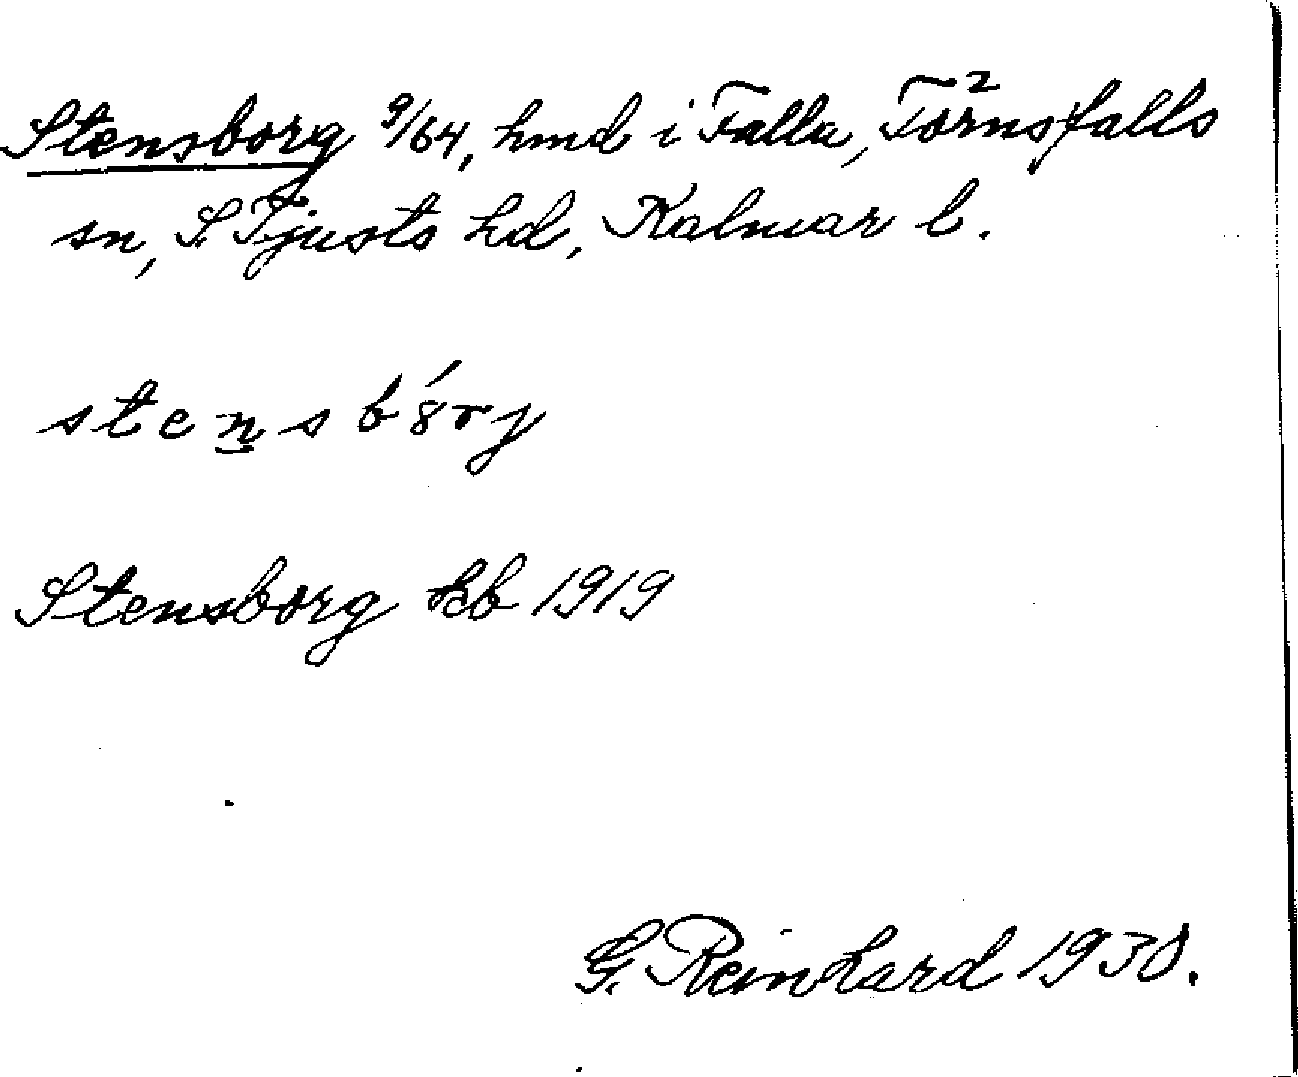 Stensborg 9/64, hmd i Falla, Törnsfalls
sn, S. Tjusts hd, Kalmar l.
stensbórj
Stensborg kb 1919
G. Reinhard 1930.